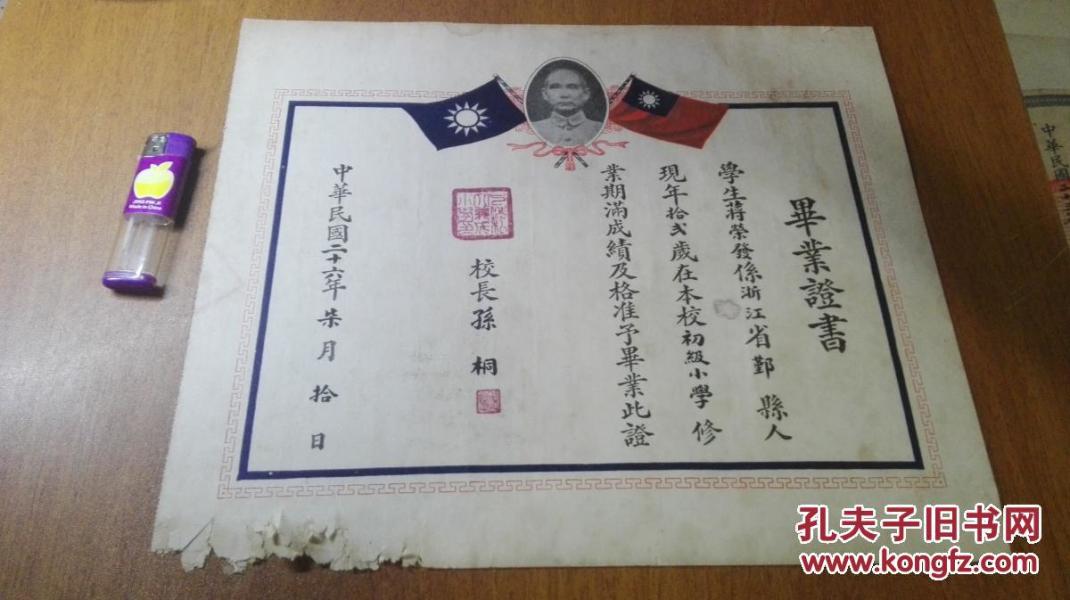 畢業證書
學生蔣榮發係浙江省鄞縣人
現年拾弍歲在本校初級小學修
業期滿成績及格准予畢業此證
校長孫桐
中華民國二十六年柒月拾日
Made in China
中華民國二十
孔夫子旧书网
www.kongfz.com